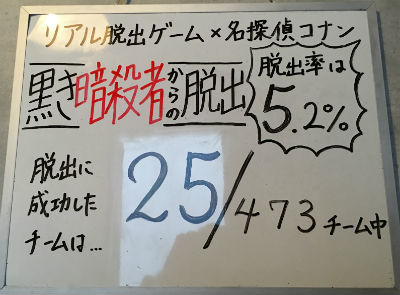 リアル脱出ゲーム×名探偵コナン
黒き暗殺者からの脱出
脱出率は
5.2%
脱出に
成功した
チームは…
25/473チーム中